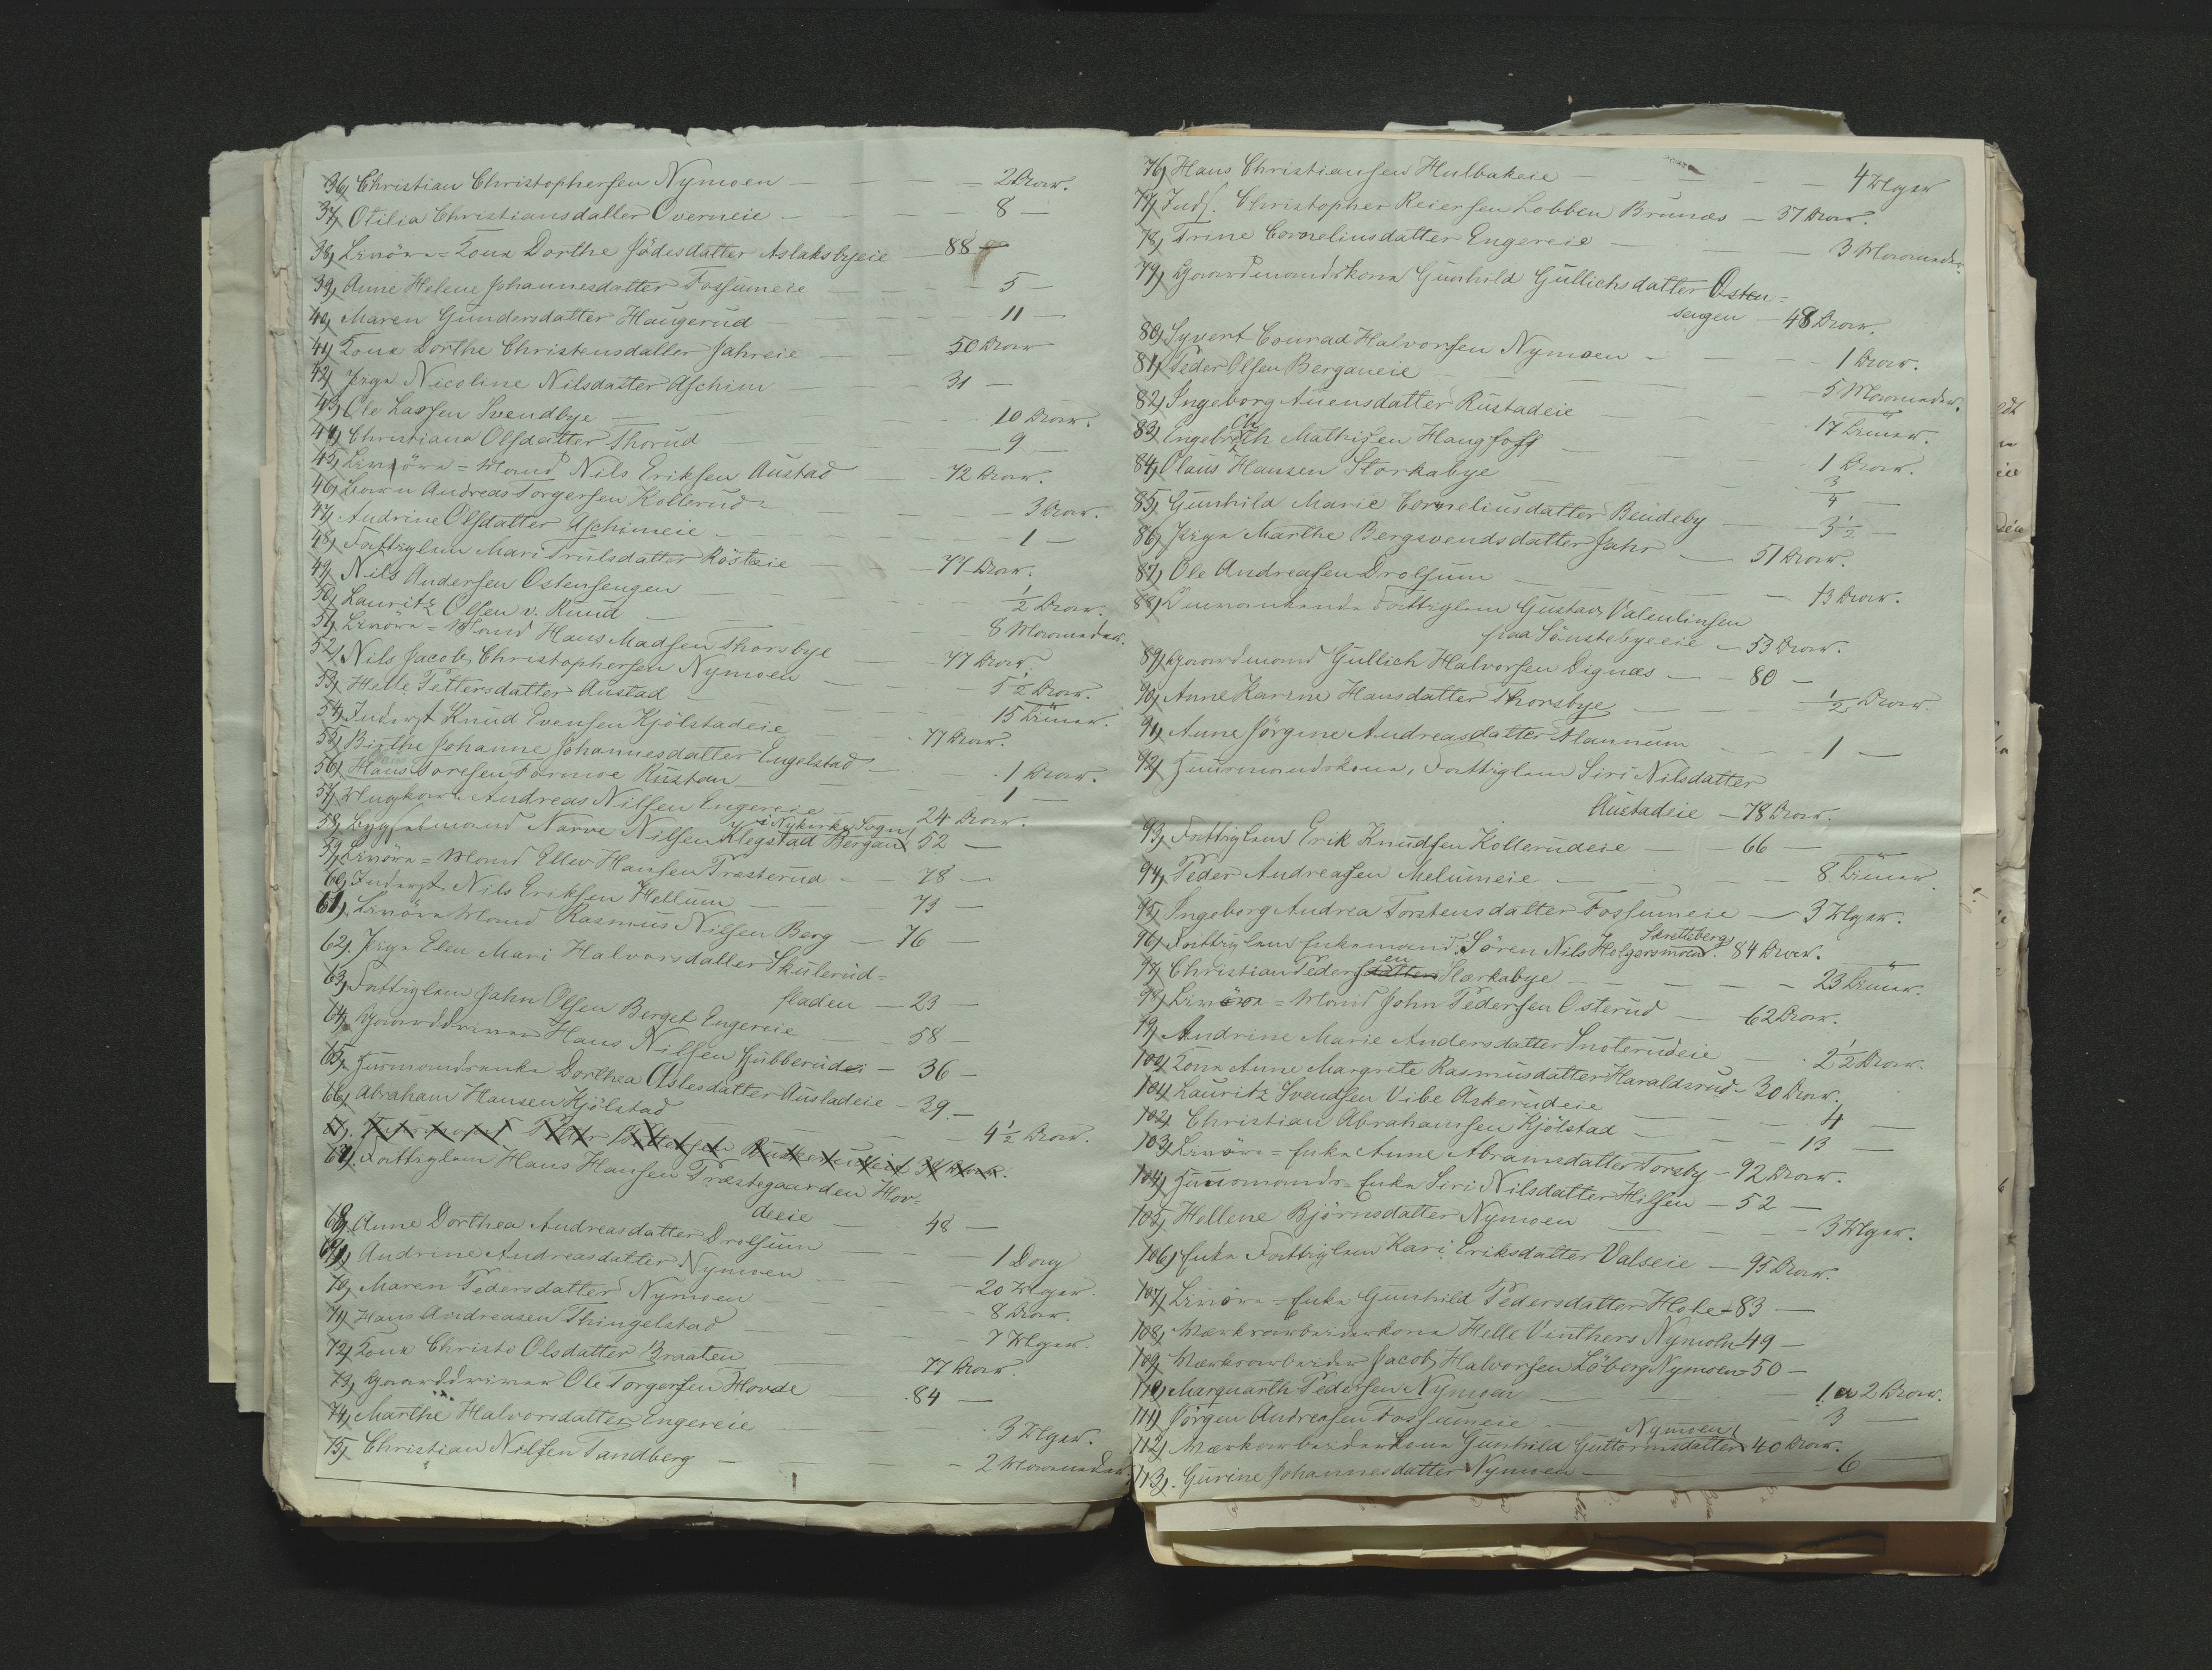 36, Christian Christophersen Nymoen — — — 2 Aar.
37, Otilia Christiansdatter Overneie — — — 8 —
38, Livöre-Kone Dorthe Jödesdatter Aslaksbyeie — 88 —
39, Anne Helene Johannesdatter Fossumeie — — 5 —
40, Maren Gundersdatter Haugerud — — — 11 —
41, Kone Dorthe Christensdatter Jahreie — — 50 Aar
42, Pige Nicoline Nilsdatter Aschim — — 31 —
43, Ole Larsen Svendbye — — 10 Aar.
44, Christiana Olsdatter Thorud — — 9 —
45, Livöre-Mand Nils Eriksen Austad — 72 Aar.
46, Barn Andreas Torgersen Kollerud — — 3 Aar.
47, Andrine Olsdatter Aschimeie — — 1 —
48, Fattiglem Mari Trulsdatter Rösteie — 77 Aar.
49, Nils Andersen Ostensengen — — ½ Aar.
50, Lauritz Olsen v. Ruud — — 8 Maaneder.
51, Livöre-Mand Hans Madsen Thorsbye — 77 Aar.
52, Nils Jacob Christophersen Nymoen — — 5½ Aar.
53, Helle Pettersdatter Austad — — 15 Timer.
54, Inderst Knud Evensen Kjölstadeie — 77 Aar.
55, Birthe Johanne Johannesdatter Engelstad — 1 Aar.
56, Hans Toresen Formoe Rustan — — 1 —
57, Ungkarl Andreas Nilsen Engereie — 24 Aar.
i Nykirke Sogn
58, Bygselmand Narve Nilsen Klegstad Bergan 52 —
59, Livöre-Mand Ellev Hansen Præsterud — 78 —
60, Inderst Nils Eriksen Hellum — 73 —
61, Livöre Mand Rasmus Nilsen Berg — 76 —
62, Pige Elen Mari Halvorsdatter Skulerud-
fladen — 23 —
63, Fattiglem Jahn Olsen Berget Engereie — 58 —
64, Gaardbruger Hans Nilsen Gubberudei — 36 —
65, Huusmandsenke Dorthea Aslesdatter Austadeie — 39 —
66, Abraham Hansen Kjölstad — — 4½ Aar.
67, Fattiglem Hans Hansen Præstegaarden Hov-
deeie — 48 —
68, Anne Dorthea Andreasdatter Drolsum — — 1 Dag
69, Andrine Andreasdatter Nymoen — — 20 Uger.
70, Maren Pedersdatter Nymoen — — 8 Aar.
71, Hans Andreasen Thingelstad — — 7 Uger.
72, Kone Christi Olsdatter Braaten — 77 Aar.
73, Gaardbruger Ole Torgersen Hovde — 84 —
74, Marthe Halvorsdatter Engereie — — 3 Uger.
75, Christian Nilsen Tandberg — — 2 Maaneder.
76, Hans Christiansen Hulbakeie — — 4 Uger
77, Inds. Christopher Reiersen Lobben Brunæs — 37 Aar.
78, Trine Corneliusdatter Engereie — — 3 Maaneder.
79, Gaardmandskone Gunhild Gullichsdatter Osten-
sengen — 48 Aar.
80, Syvert Conrad Halvorsen Nymoen — — 1 Aar.
81, Peder Olsen Berganeie — — 5 Maaneder.
82, Ingeborg Auensdatter Rustadeie — — 17 Timer.
83, Engebreth Mathisen Haugfoss — — 1 Aar.
84, Claus Hansen Storkabye — — ¾ —
85, Gunhild Marie Corneliusdatter Bendeby — 3½ —
86, Pige Marthe Bergsvendsdatter Jahr — 51 Aar.
87, Ole Andreasen Drolsum — — 13 Aar.
88, Fattiglem Gustav Valentinsen
fraa Sönstebyeeie — 53 Aar.
89, Gaardmand Gullich Halvorsen Dignæs — 80 —
90, Anne Karine Hansdatter Thorsbye — — ½ Aar.
91, Anne Jörgine Andreasdatter Flannum — — 1 —
92, Huusmandskone, Fattiglem Siri Nilsdatter
Austadeie — 78 Aar.
93, Fattiglem Erik Knudsen Kollerudeie — 66 —
94, Peder Andreasen Melumeie — — 8 Timer.
95, Ingeborg Andrea Torstensdatter Fossumeie — 3 Uger.
Skretteberg
96, Fattiglem Enkemand Sören Nils Holgersmoen. 84 Aar.
97, Christian Pedersen Stærkabye — — 23 Timer.
98, Livöre-Mand John Pedersen Osterud — 62 Aar.
99, Andrine Marie Andersdatter Snoterudeie — 2½ Aar.
100, Kone Anne Margrete Rasmusdatter Haraldsrud — 30 Aar.
101, Lauritz Svendsen Vibe Askerudeie — — 4 —
102, Christian Abrahamsen Kjölstad — — 13 —
103, Livöre-Enke Anne Abramsdatter Torsby — 92 Aar.
104, Huusmands-Enke Siri Nilsdatter Hilsen — 52 —
105, Hellene Björnsdatter Nymoen — — 3 Uger.
106, Enke Fattiglem Kari Eriksdatter Valseie — 95 Aar.
107, Livöre-Enke Gunhild Pedersdatter Hole — 83 —
108, Værksarbeiderkone Helle Vinthers Nymoen 49 —
109, Værksarbeider Jacob Halvorsen Löberg Nymoen 50 —
110, Marquarth Pedersen Nymoen — — 1 a 2 Aar.
111, Jörgen Andreasen Fossumeie — — 3 —
Nymoen
112, Værksarbeiderkone Gunhild Guttormsdatter 40 Aar.
113, Gurine Johannesdatter Nymoen — — 6